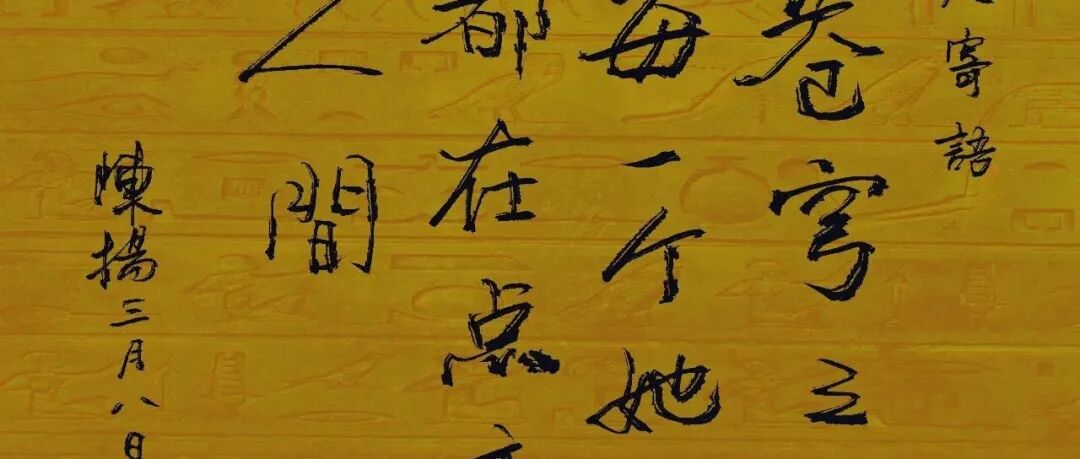 寄語
苍穹之
每一个她
都在点
人間
陳揚三月八日